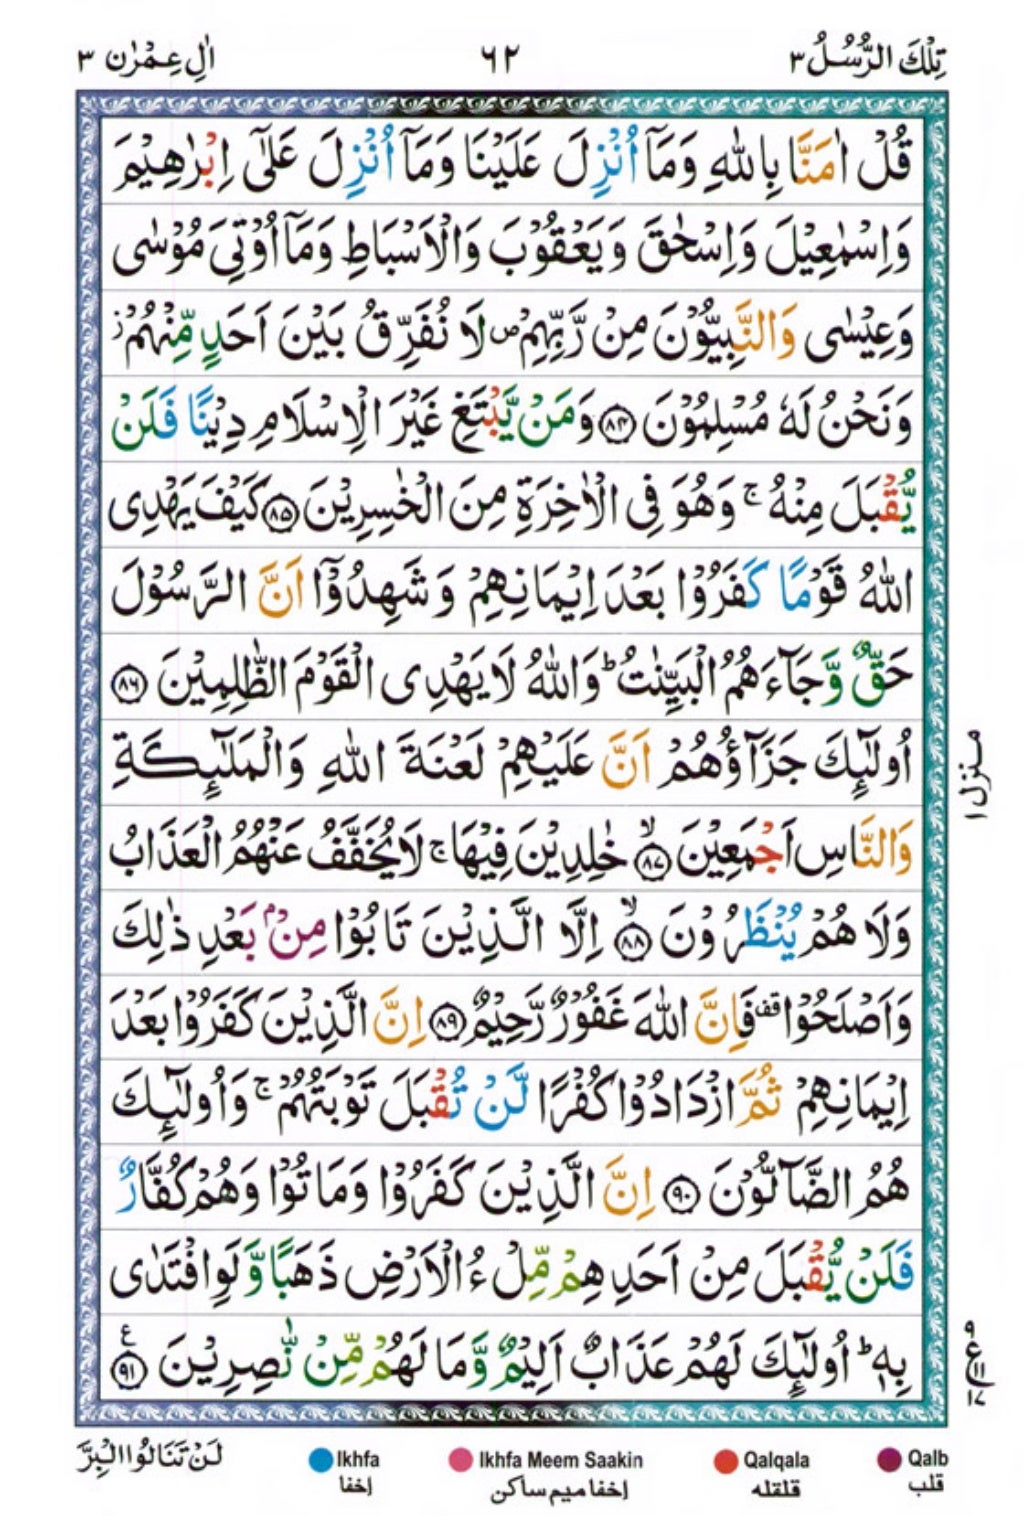 تِلْكَ الرُّسُلُ ٣ ٦٢ اٰلِ عِمْرٰن ٣
قُلْ اٰمَنَّا بِاللّٰهِ وَمَاۤ اُنْزِلَ عَلَيْنَا وَمَاۤ اُنْزِلَ عَلٰۤى اِبْرٰهِيْمَ
وَاِسْمٰعِيْلَ وَاِسْحٰقَ وَيَعْقُوْبَ وَالْاَسْبَاطِ وَمَاۤ اُوْتِيَ مُوْسٰى
وَعِيْسٰى وَالنَّبِيُّوْنَ مِنْ رَّبِّهِمْ ص لَا نُفَرِّقُ بَيْنَ اَحَدٍ مِّنْهُمْ ز
وَنَحْنُ لَهٗ مُسْلِمُوْنَ ٨٤ وَمَنْ يَّبْتَغِ غَيْرَ الْاِسْلَامِ دِيْنًا فَلَنْ
يُّقْبَلَ مِنْهُ ج وَهُوَ فِى الْاٰخِرَةِ مِنَ الْخٰسِرِيْنَ ٨٥ كَيْفَ يَهْدِى
اللّٰهُ قَوْمًا كَفَرُوْا بَعْدَ اِيْمَانِهِمْ وَشَهِدُوْۤا اَنَّ الرَّسُوْلَ
حَقٌّ وَّجَآءَهُمُ الْبَيِّنٰتُ ط وَاللّٰهُ لَا يَهْدِى الْقَوْمَ الظّٰلِمِيْنَ ٨٦
اُولٰٓئِكَ جَزَآؤُهُمْ اَنَّ عَلَيْهِمْ لَعْنَةَ اللّٰهِ وَالْمَلٰٓئِكَةِ
وَالنَّاسِ اَجْمَعِيْنَ ٨٧ لا خٰلِدِيْنَ فِيْهَا ج لَا يُخَفَّفُ عَنْهُمُ الْعَذَابُ
وَلَا هُمْ يُنْظَرُوْنَ ٨٨ لا اِلَّا الَّذِيْنَ تَابُوْا مِنْۢ بَعْدِ ذٰلِكَ
وَاَصْلَحُوْا قف فَاِنَّ اللّٰهَ غَفُوْرٌ رَّحِيْمٌ ٨٩ اِنَّ الَّذِيْنَ كَفَرُوْا بَعْدَ
اِيْمَانِهِمْ ثُمَّ ازْدَادُوْا كُفْرًا لَّنْ تُقْبَلَ تَوْبَتُهُمْ ج وَاُولٰٓئِكَ
هُمُ الضَّآلُّوْنَ ٩٠ اِنَّ الَّذِيْنَ كَفَرُوْا وَمَاتُوْا وَهُمْ كُفَّارٌ
فَلَنْ يُّقْبَلَ مِنْ اَحَدِهِمْ مِّلْءُ الْاَرْضِ ذَهَبًا وَّلَوِ افْتَدٰى
بِهٖ ط اُولٰٓئِكَ لَهُمْ عَذَابٌ اَلِيْمٌ وَّمَا لَهُمْ مِّنْ نّٰصِرِيْنَ ٩١ ع
منزل ١
لَنْ تَنَالُوا الْبِرَّ
Ikhfa Ikhfa Meem Saakin Qalqala Qalb
اخفا اخفا میم ساکن قلقله قلب